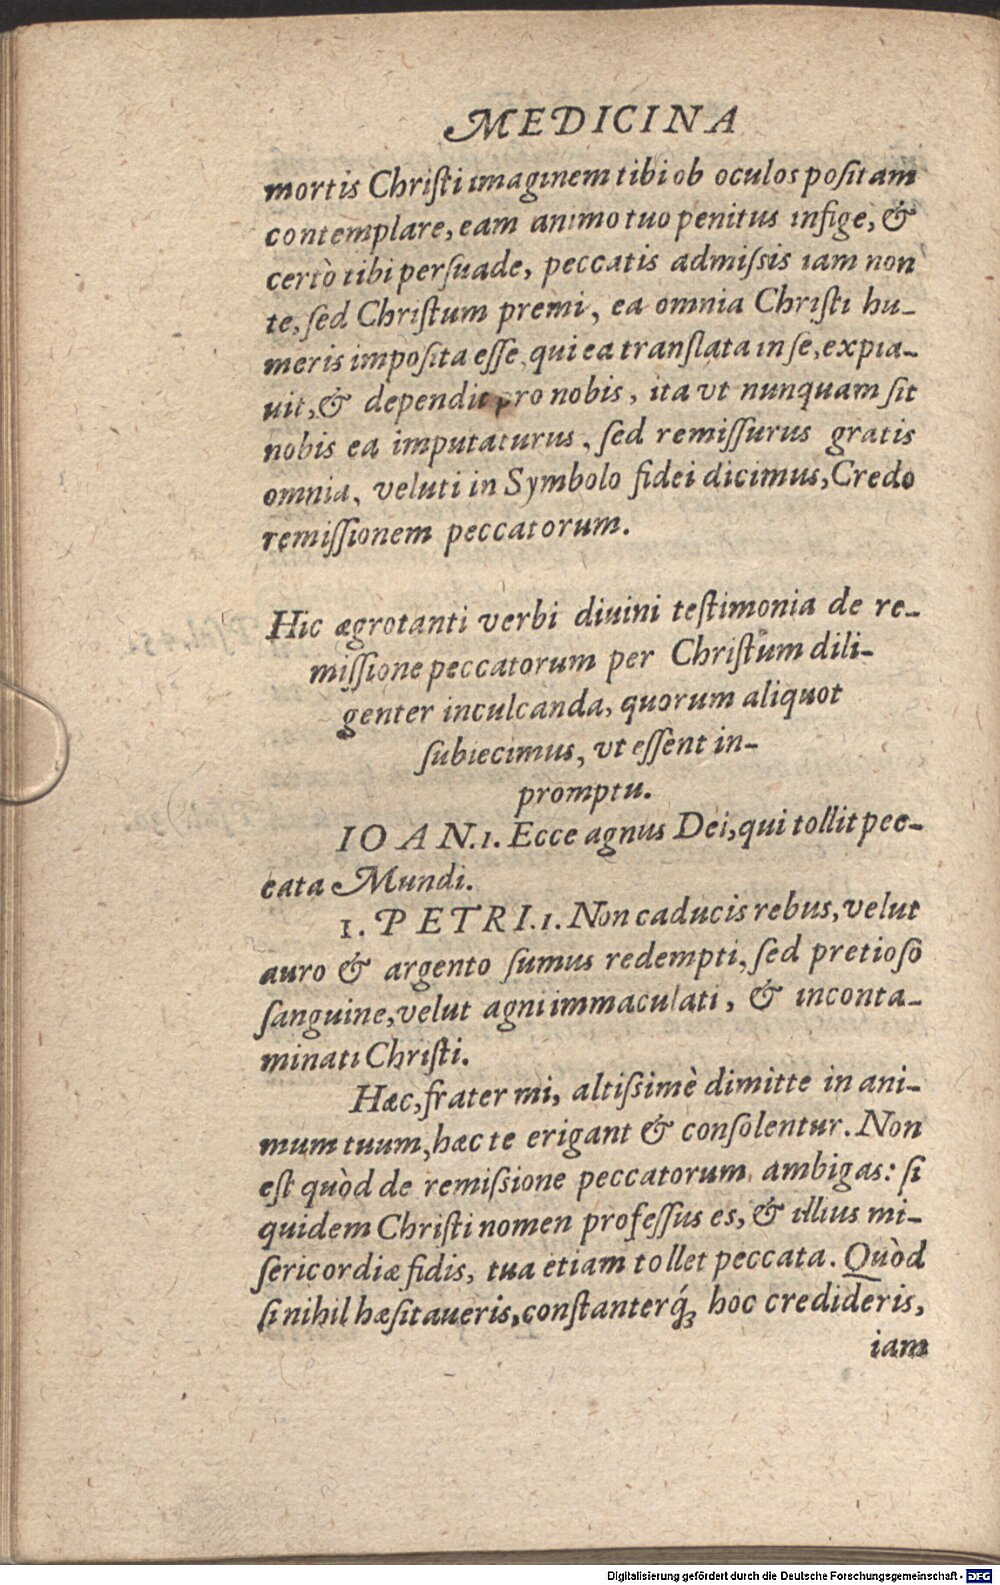 MEDICINA
mortis Chriſti imaginem tibi ob oculos poſitam
contemplare, eam animo tuo penitus infige, &
certò tibi perſuade, peccatis admiſsis iam non
te, ſed Chriſtum premi, ea omnia Chriſti hu-
meris impoſita eſſe, qui ea translata in ſe, expia-
uit, & dependit pro nobis, ita vt nunquam ſit
nobis ea imputaturus, ſed remiſſurus gratis
omnia, veluti in Symbolo fidei dicimus, Credo
remiſſionem peccatorum.
Hic ægrotanti verbi diuini teſtimonia de re-
miſſione peccatorum per Chriſtum dili-
genter inculcanda, quorum aliquot
ſubiecimus, vt eſſent in-
promptu.
IOAN.1. Ecce agnus Dei, qui tollit pec-
cata Mundi.
1. PETRI.1. Non caducis rebus, velut
auro & argento ſumus redempti, ſed pretioſo
ſanguine, velut agni immaculati, & inconta-
minati Chriſti.
Hæc, frater mi, altiſsimè dimitte in ani-
mum tuum, hæc te erigant & conſolentur. Non
eſt quòd de remiſsione peccatorum ambigas: ſi
quidem Chriſti nomen profeſſus es, & illius mi-
ſericordiæ fidis, tua etiam tollet peccata. Quòd
ſi nihil hæſitaueris, conſtanterq́ꝫ hoc credideris,
iam
Digitalisierung gefördert durch die Deutsche Forschungsgemeinschaft - DFG